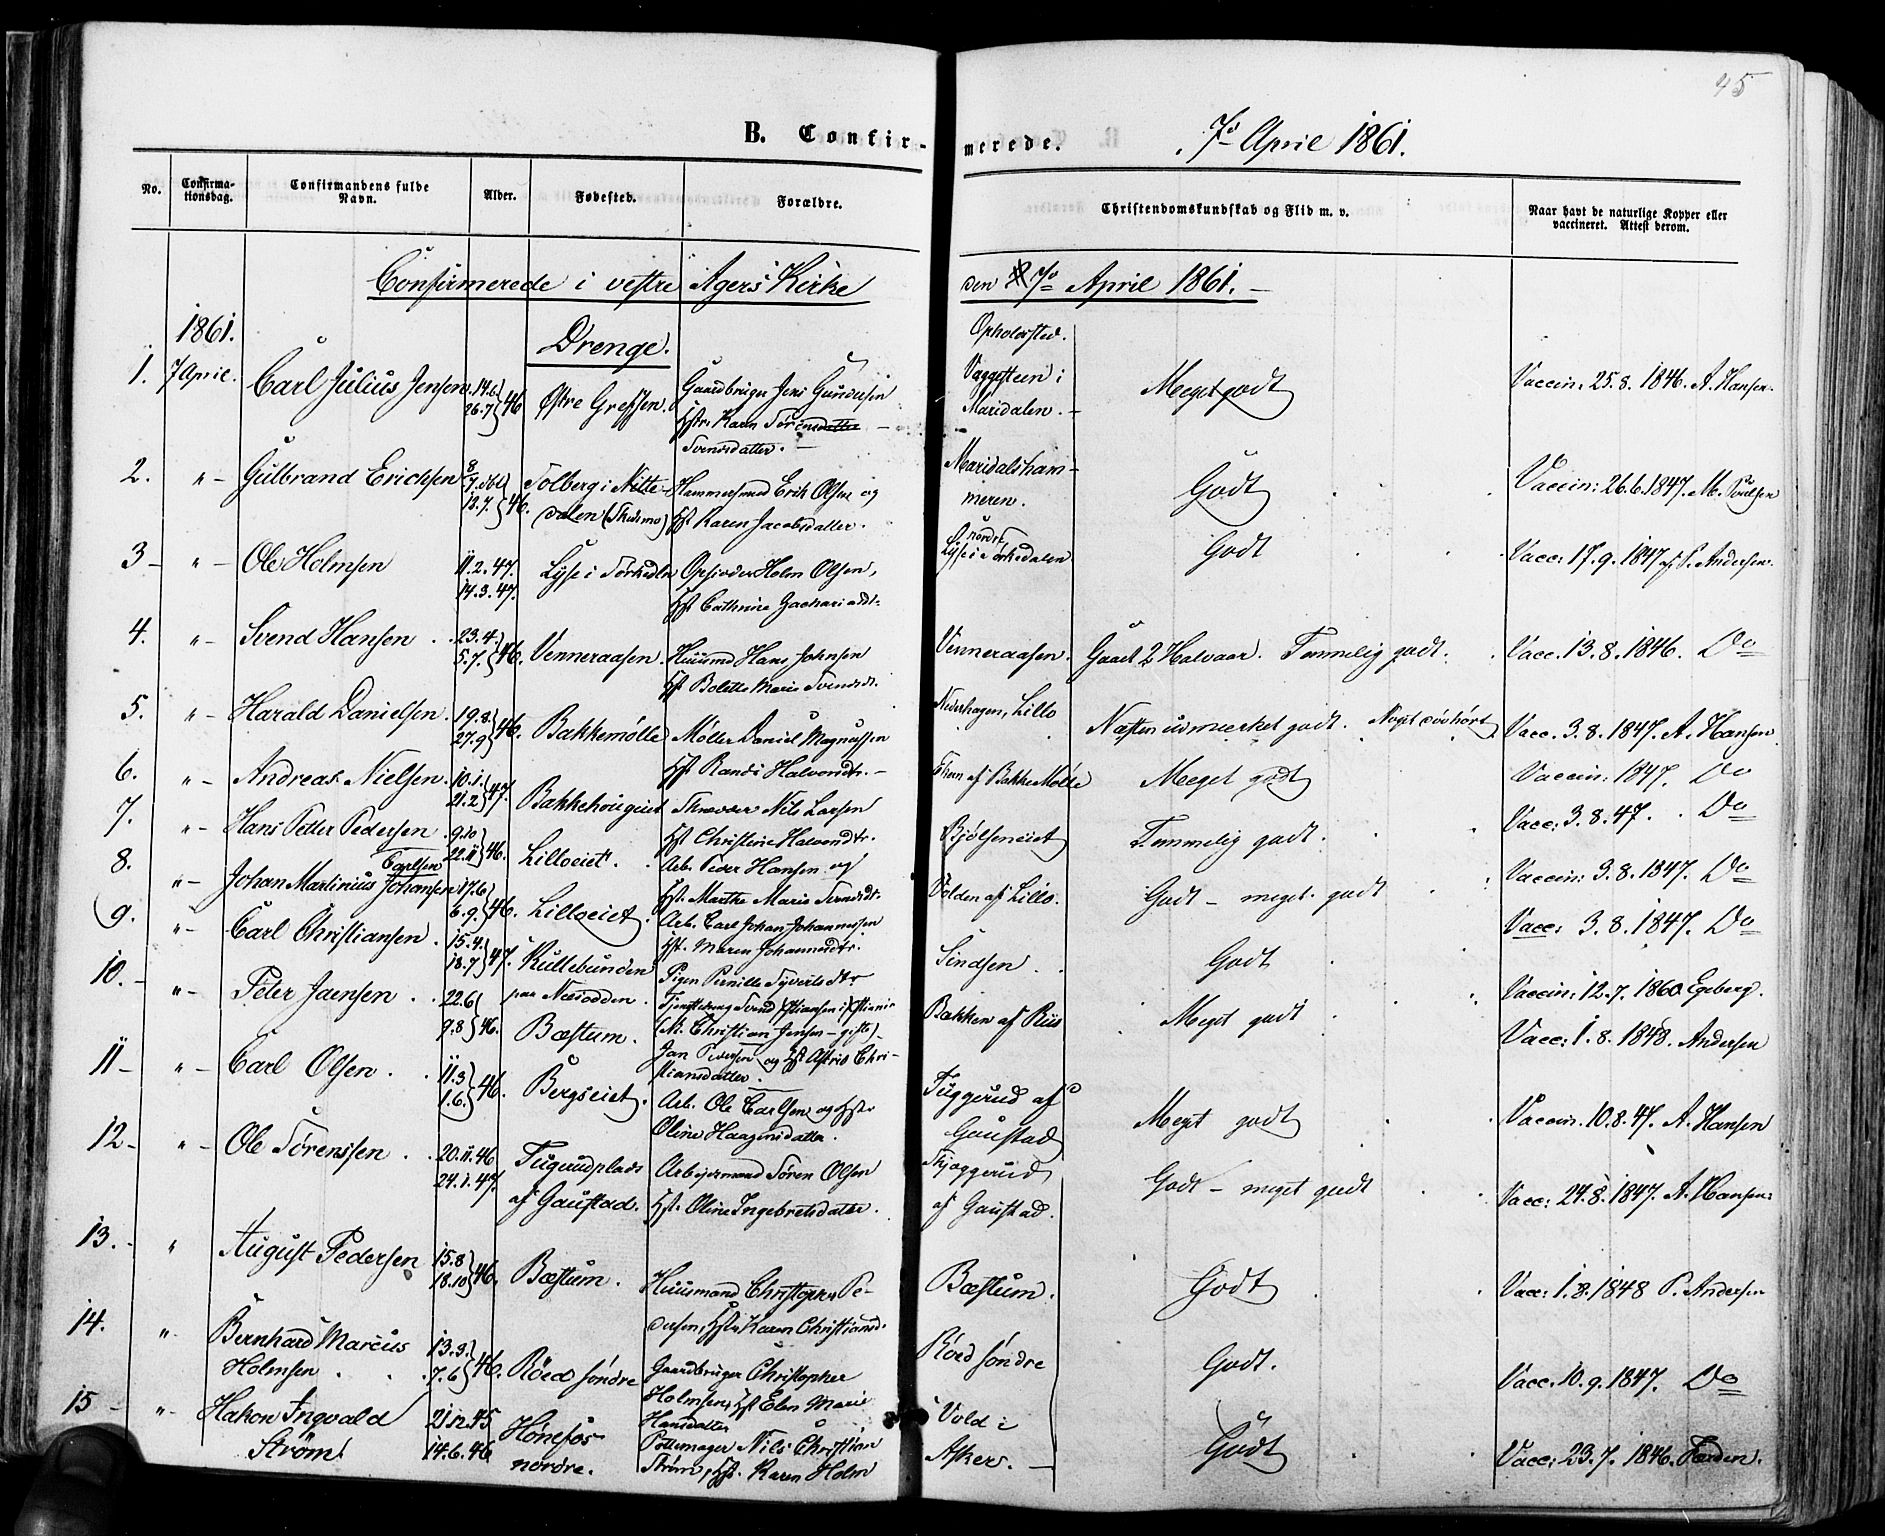 45
B. Confirmerede. 7de April 1861.
No. Confirmationsdag. Confirmandens fulde Navn. Alder. Fødested. Forældre. Christendomskundskab og Flid m. v. Naar havt de naturlige Kopper eller vaccineret. Attest derom.
Confirmerede i vestre Agers Kirke den 7de April 1861. –
1861. Drenge. Opholdsted.
1. 7 April. Carl Julius Jensen 14.6 26.7 } 46 Østre Grefsen. Gaardbruger Jens Gundersen Hstr. Karen Sörensdatter Svensdatter. – Vaggesteen i Maridalen. – Meget godt Vaccin: 25.8.1846. A. Hansen.
2. " – Gulbrand Erichsen 8/7. dbt 13.7. } 46. Solberg i Nittedalen (Skedsmo) Hammersmed Erik Olsen og Hst Karen Jacobsdatter. Maridalshammeren. Godt Vaccin: 26.6.1847. M. Poulsen
3 – " – Ole Holmsen 11.2.47. 14.3.47. Lyse i Sörkedln Opsidder Holm Olsen, Hst Cathrine Zachariadt. nordre Lyse i Sörkedalen Godt Vacc: 17.9.1847 af P. Andersen.
4. " – Svend Hansen 23.4. 5.7. } 46. Venneraasen. Huusmd Hans Johnsen Hst Bolette Marie Svendsdt. Venneraasen. Gaaet 2 Halvaar. Temmelig godt. Vacc. 13.8.1846. Do
5. " – Harald Danielsen. 19.8. 27.9 } 46. Bakkemølle Møller Daniel Magnussen Hst Randi Halvorsdtr. – Nederhagen, Lillo Næsten udmærket godt. Noget døvhørt Vacc. 3.8.1847. A. Hansen
6. " – Andreas Nielsen. 10.1. 21.2 } 47. Bakkehougeiet Nils Larsen Hst Christine Halvorsdtr. af Bakke Mølle Meget godt Vaccin: 1847. Do
7. " – Hans Petter Pedersen 9.10 22.11 } 46. Lilloeiet. Arb. Peder Hansen og Hst. Marthe Marie Svendsdt. Bjølseneiet Temmelig godt. Vacc: 3.8.47. Do
8. " – Johan Martinius Johansen Carlsen 17.6 6.9. } 46. Lilloeiet. Arb. Carl Johan Johannesen Hst. Maren Johannesdtr. Volden af Lillo. Godt – meget godt Vaccin: 3.8.1847. Do
9. " – Carl Christiansen. 15.4. 18.7 } 47. Kullebunden paa Næsodden. Pigen Pernille Syvertsdtr Tjenestedreng Svend Christiansen Sindsen. Godt Vacc: 3.8.1847. Do
10. – " – Peter Jaensen. 22.6 9.8 } 46. Bæstum. (N. Christian Jensen – gift) Jan Pedersen og Hst Astrid Christiansdatter. Bakken af Riis Meget godt Vaccin: 12.7.1860. Egeberg.
Vacc: 1.8.1848. Andersen
11 – " – Carl Olsen. 11.3 1.6. } 46. Bergseiet. Arb. Ole Carlsen og Hst. Oline Haagensdatter. Tuggerud af Gaustad Meget godt Vaccin. 10.8.47. A. Hansen
12 – " – Ole Sørenssen. 20.11.46 24.1.47. Tugerudplads af Gaustad. Arbejdsmand Søren Olsen Hst. Oline Ingebretsdatter. af Gaustad. Godt – meget godt Vacc: 24.8.1847. A. Hansen.
13. – " August Pedersen 15.8 18.10 } 46. Bæstum. Huusmand Christopher Pedersen, Hstr. Karen Christiansd. Bæstum. Godt Vacc: 1.8.1848 P. Andersen
14. " – Bernhard Marcus Holmsen. 13.3. 7.6 } 46. Röed søndre Gaardbruger Christopher Holmsen, Hst Elen Marie Hansdatter Röed søndre Godt. Vacc. 10.9.1847. Do
15 – " – Hakon Ingvald Strøm 21.12.45 14.6.46 Hönefos nordre. Pottemager Nils Christian Strøm, Hst. Karen Holm Vold i Asker. – Godt Vacc: 23.7.1846.